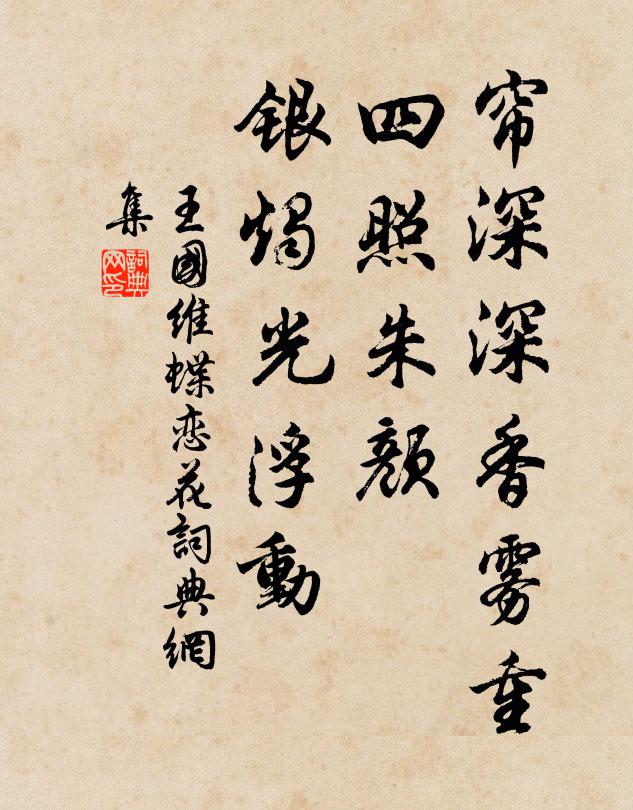 帘深深香雾重
四照朱颜
银烛光浮動
王國維蝶恋花詞典網
集
詞典网印